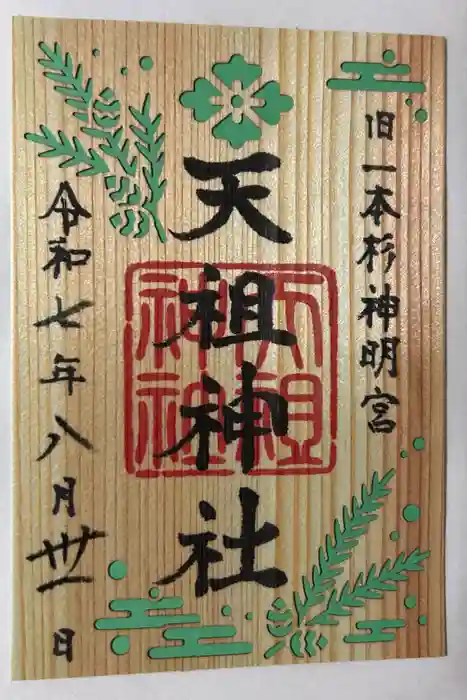 旧一本杉神明宮
天祖神社
天祖
神社
令和七年八月卅一日